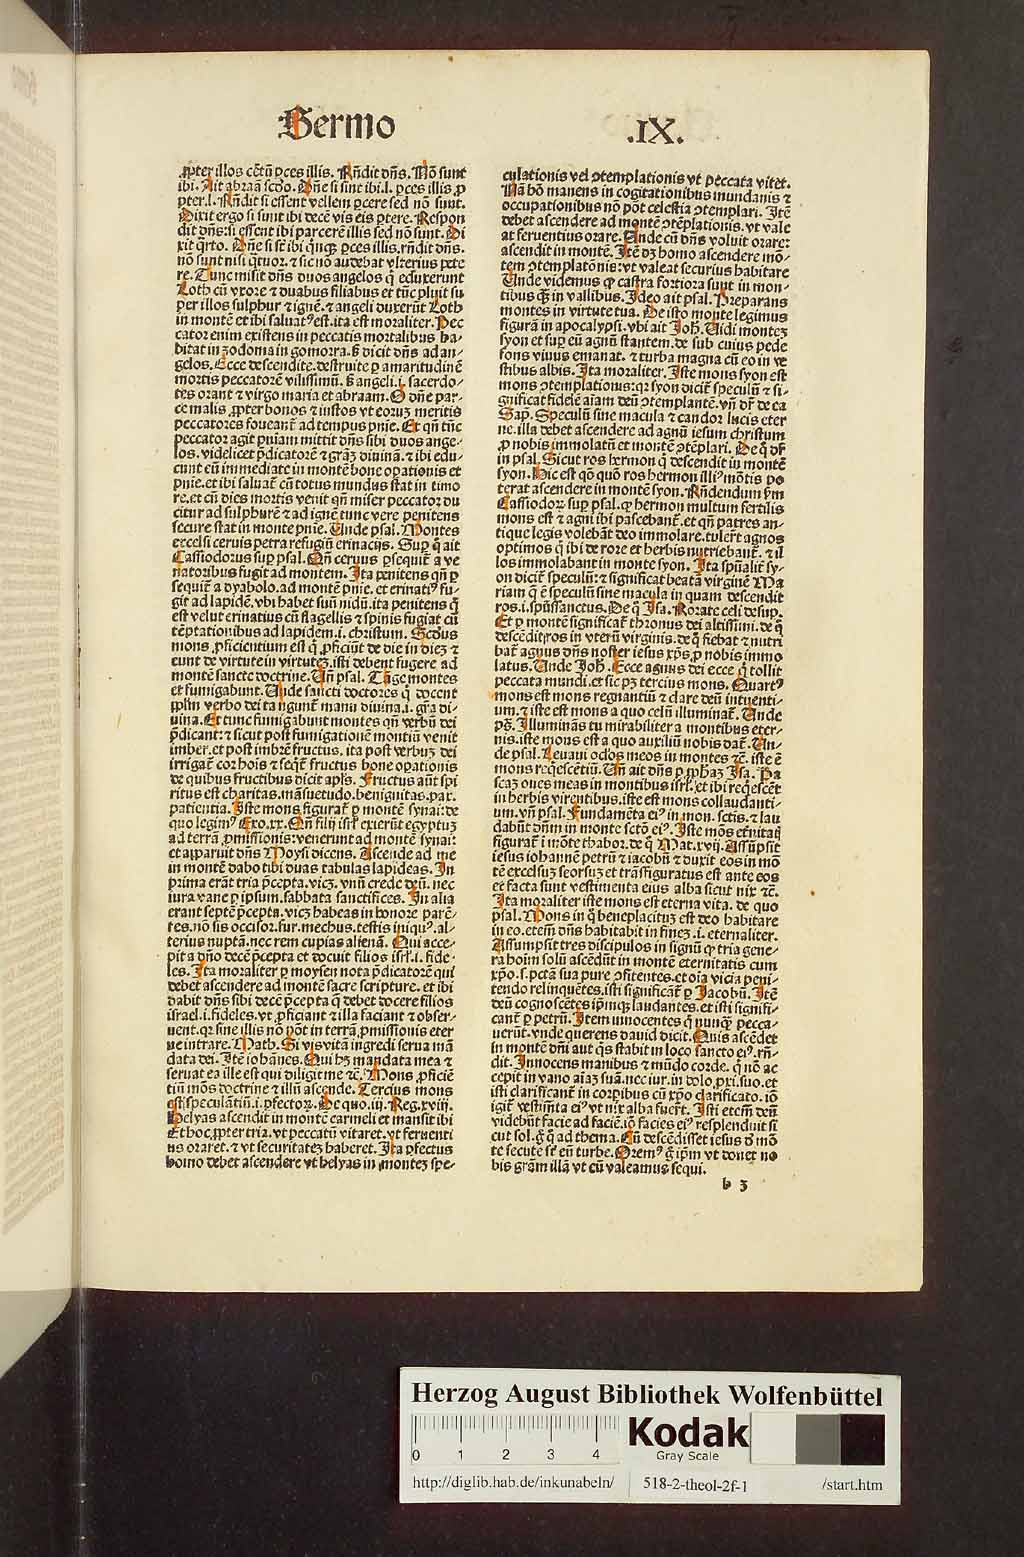 Sermo
.IX.
ꝓpter illos cētū ꝑces illis. Rn̄dit dn̄s. Nō sunt
ibi. Ait abraā scd̄o. Dn̄e si sint ibi.l. ꝑces illis ꝓ
pter.l. Rn̄dit si essent vellem ꝑcere sed nō sunt.
Dixit ergo si sunt ibi decē vis eis ꝑcere. Respon
dit dn̄s: si essent ibi parcerē illis sed nō sunt. Di
xit q̄rto. Dn̄e si sēt ibi q̄nqꝫ ꝑces illis. rn̄dit dn̄s.
nō sunt nisi q̄tuor. ⁊ sic nō audebat vlterius pete
re. Tunc misit dn̄s duos angelos q̄ eduxerunt
Loth cū vxore ⁊ duabus filiabus et tūc pluit su
per illos sulphur ⁊ ignē. ⁊ angeli duxerūt Loth
in montē et ibi saluatꝰ est. ita est moraliter. Pec
cator enim existens in peccatis mortalibus ha-
bitat in zodoma in gomorra. ꝫ dicit dn̄s ad an-
gelos. Ecce descendite. destruite ꝑ amaritudinē
mortis peccatorē vilissimū. ꝫ angeli .i. sacerdo-
tes orant ⁊ virgo maria et abraam. O dn̄e par-
ce malis ꝓpter bonos ⁊ iustos vt eoruꝫ meritis
peccatores foueant̄ ad tempus pn̄ie. Et qn̄ tūc
peccator agit pn̄iam mittit dn̄s sibi duos ange-
los. videlicet p̄dicatorē ⁊ grāꝫ diuinā. ⁊ ibi edu-
cunt eū immediate in montē bone oꝑationis et
pn̄ie. et ibi saluat̄ cū totus mundus stat in timo
re. et cū dies mortis venit qn̄ miser peccator du
citur ad sulphurē ⁊ ad ignē tunc vere penitens
secure stat in monte pn̄ie. Unde psal. Montes
excelsi ceruis petra refugiū erinacijs. Suꝑ q̄ ait
Cassiodorus suꝑ psal. Qn̄ ceruus ꝑsequit̄ a ve
natoribus fugit ad montem. Ita penitens qn̄ ꝑ
sequit̄ a dyabolo. ad montē pn̄ie. et erinatiꝰ fu-
git ad lapidē. vbi habet suū nidū. ita penitens q̄
est velut erinatius cū flagellis ⁊ spinis fugiat cū
tēptationibus ad lapidem .i. christum. Scd̄us
mons ꝓficientium est q̄ ꝓficiūt de die in dieꝫ ⁊
eunt de virtute in virtuteꝫ. isti debent fugere ad
montē sancte doctrine. Un̄ psal. Tāge montes
et fumigabunt. Unde sancti doctores q̄ docent
pplm̄ verbo dei tangunt̄ manu diuina .i. gr̄a di-
uina. Et tunc fumigabunt montes qn̄ verbū dei
p̄dicant: ⁊ sicut post fumigationē montiū venit
imber. et post imbrē fructus. ita post verbuꝫ dei
irrigat̄ cor hois ⁊ seqt̄ fructus bone oꝑationis
de quibus fructibus dicit apl̄s. Fructus aūt spi
ritus est charitas. māsuetudo. benignitas. pax.
patientia. Iste mons figurat̄ ꝑ montē synai: de
quo legimꝰ Exo.xx. Qn̄ filij isrl̄ exierūt egyptuꝫ
ad terrā ꝓmissionis: venerunt ad montē synai:
et apparuit dn̄s Moysi dicens. Ascende ad me
in montē dabo tibi duas tabulas lapideas. In
prima erāt tria p̄cepta. vicꝫ. vnū crede deū. nec
iura vane ꝑ ipsum. sabbata sanctifices. In alia
erant septē p̄cepta. vicꝫ habeas in honore parē-
tes. nō sis occisor. fur. mechus. testis iniquꝰ. al-
terius nuptā. nec rem cupias alienā. Qui acce-
pit a dn̄o decē p̄cepta et docuit filios isrl̄ .i. fide-
les. Ita moraliter ꝑ moysen nota p̄dicatorē qui
debet ascendere ad montē sacre scripture. et ibi
dabit dn̄s sibi decē p̄cepta q̄ debet docere filios
israel .i. fideles. vt ꝓficiant ⁊ illa faciant ⁊ obser-
uent. qꝛ sine illis nō pōt in terrā ꝓmissionis eter
ne intrare. Math. Si vis vitā ingredi serua mā
data dei. Itē iohānes. Qui hꝫ mandata mea ⁊
seruat ea ille est qui diligit me ⁊c̄. Mons ꝓficiē
tiū mōs doctrine ⁊ illū ascende. Tercius mons
est speculātiū .i. ꝑfectoꝝ. De quo .iij. Reg.xviij.
Helyas ascendit in montē carmeli et mansit ibi
Et hoc ꝓpter tria. vt peccatū vitaret. vt feruenti
us oraret. ⁊ vt securitateꝫ haberet. Ita ꝑfectus
homo debet ascendere vt helyas in monteꝫ spe-
culationis vel ꝯtemplationis vt peccata vitet.
Nā hō manens in cogitationibus mundanis ⁊
occupationibus nō pōt celestia ꝯtemplari. Itē
debet ascendere ad montē ꝯtēplationis. vt vale
at feruentius orare. Unde cū dn̄s voluit orare:
ascendit in montē. Itē dꝫ homo ascendere mō-
tem ꝯtemplatōnis: vt valeat securius habitare
Unde videmus ꝙ castra fortiora sunt in mon-
tibus qꝫ in vallibus. Ideo ait psal. Preparans
montes in virtute tua. De isto monte legimus
figurā in apocalypsi. vbi ait Joh̄. Uidi monteꝫ
syon et suꝑ eū agnū stantem. de sub cuius pede
fons viuus emanat. ⁊ turba magna cū eo in ve
stibus albis. Ita moraliter. Iste mons syon est
mons ꝯtemplationus: qꝛ syon dicit̄ speculū ⁊ si-
gnificat fidelē aīam deū ꝯtemplantē. vn̄ dr̄ de ea
Sap. Speculū sine macula ⁊ candor lucis eter
ne. illa debet ascendere ad agnū iesum christum
ꝓ nobis immolatū et montē ꝯtēplari. De q̄ dr̄
in psal. Sicut ros hermon q̄ descendit in montē
syon. Hic est qō quō ros hermon illiꝰ mōtis po
terat ascendere in montē syon. Rn̄dendum ẜm
Cassiodoꝝ suꝑ psal. ꝙ hermon multum fertilis
mons est ⁊ agni ibi pascebant̄. et qn̄ patres an-
tique legis volebāt deo immolare. tuler̄t agnos
optimos q̄ ibi de rore et herbis nutriebant̄. ⁊ il
los immolabant in monte syon. Ita spūalit̄ sy-
on dicit̄ speculū: ⁊ significat beatā virginē Ma
riam q̄ ē speculū sine macula in quam descendit
ros .i. spūssanctus. De q̄ Isa. Rorate celi desup.
Et ꝑ montē significat̄ thronus dei altissimi. de q̄
descēdit ros in vterū virginis. de q̄ fiebat ⁊ nutri
bat̄ agnus dn̄s noster iesus xp̄s ꝓ nobis immo
latus. Unde Joh̄. Ecce agnus dei ecce q̄ tollit
peccata mundi. et sic pꝫ tercius mons. Quartꝰ
mons est mons regnantiū ⁊ clare deū intuenti-
um. ⁊ iste est mons a quo celū illuminat̄. Unde
pš. Illuminās tu mirabiliter a montibus eter-
nis. iste mons est a quo auxiliū nobis dat̄. Un-
de psal. Leuaui oclos meos in montes ⁊c̄. iste ē
mons reqescētiū. Un̄ ait dn̄s ꝑ ꝓph̄aꝫ Isa. Pa
scaꝫ oues meas in montibus isrl̄. et ibi reqescēt
in herbis virentibus. iste est mons collaudanti-
um. vn̄ psal. Fundamēta eiꝰ in mon. sctis. ⁊ lau
dabūt dn̄m in monte sctō eiꝰ. Iste mōs et̄nitatꝭ
figurat̄ ī mōte thabor. de q̄ Mat.xvij. Assūpsit
iesus iohannē petrū ⁊ iacobū ⁊ duxit eos in mō
tē excelsuꝫ seorsuꝫ et trāsfiguratus est ante eos
et facta sunt vestimenta eius alba sicut nix ⁊c̄.
Ita moraliter iste mons est eterna vita. de quo
psal. Mons in q̄ beneplacituꝫ est deo habitare
in eo. etem̄ dn̄s habitabit in fineꝫ .i. eternaliter.
Assumpsit tres discipulos in signū ꝙ tria gene-
ra hoīm solū ascēdūt in montē eternitatis cum
xp̄o .s. pctām sua pure ꝯfitentes. et oīa vicia peni-
tendo relinquētes. isti significāt̄ ꝑ Jacobū. Itē
deū cognoscētes ip̄mqꝫ laudantes. et isti signifi-
cant̄ ꝑ petrū. Item innocentes q̄ nunqꝫ pecca-
uerūt. vnde querens dauid dicit. Quis ascēdet
in montē dn̄i aut q̄s stabit in loco sancto eiꝰ. rn̄-
dit. Innocens manibus ⁊ mūdo corde. q̄ nō ac
cepit in vano aīaꝫ suā. nec iur. in dolo ꝓxi. suo. et
isti clarificant̄ in corꝑibus cū xp̄o clarificato. iō
igit̄ vestim̄ta eiꝰ vt nix alba fuer̄t. Isti etem̄ deū
videbūt facie ad faciē. iō facies eiꝰ resplenduit si
cut sol. ḡ q̄ ad thema. Cū descēdisset iesus d̄ mō
te secute sē eū turbe. Oremꝰ ḡ ip̄m vt donet no
bis grām illā vt cū valeamus sequi.
b 3
Herzog August Bibliothek Wolfenbüttel
0 1 2 3 4
Kodak
Gray Scale
http://diglib.hab.de/inkunabeln/ 518-2-theol-2f-1 /start.htm